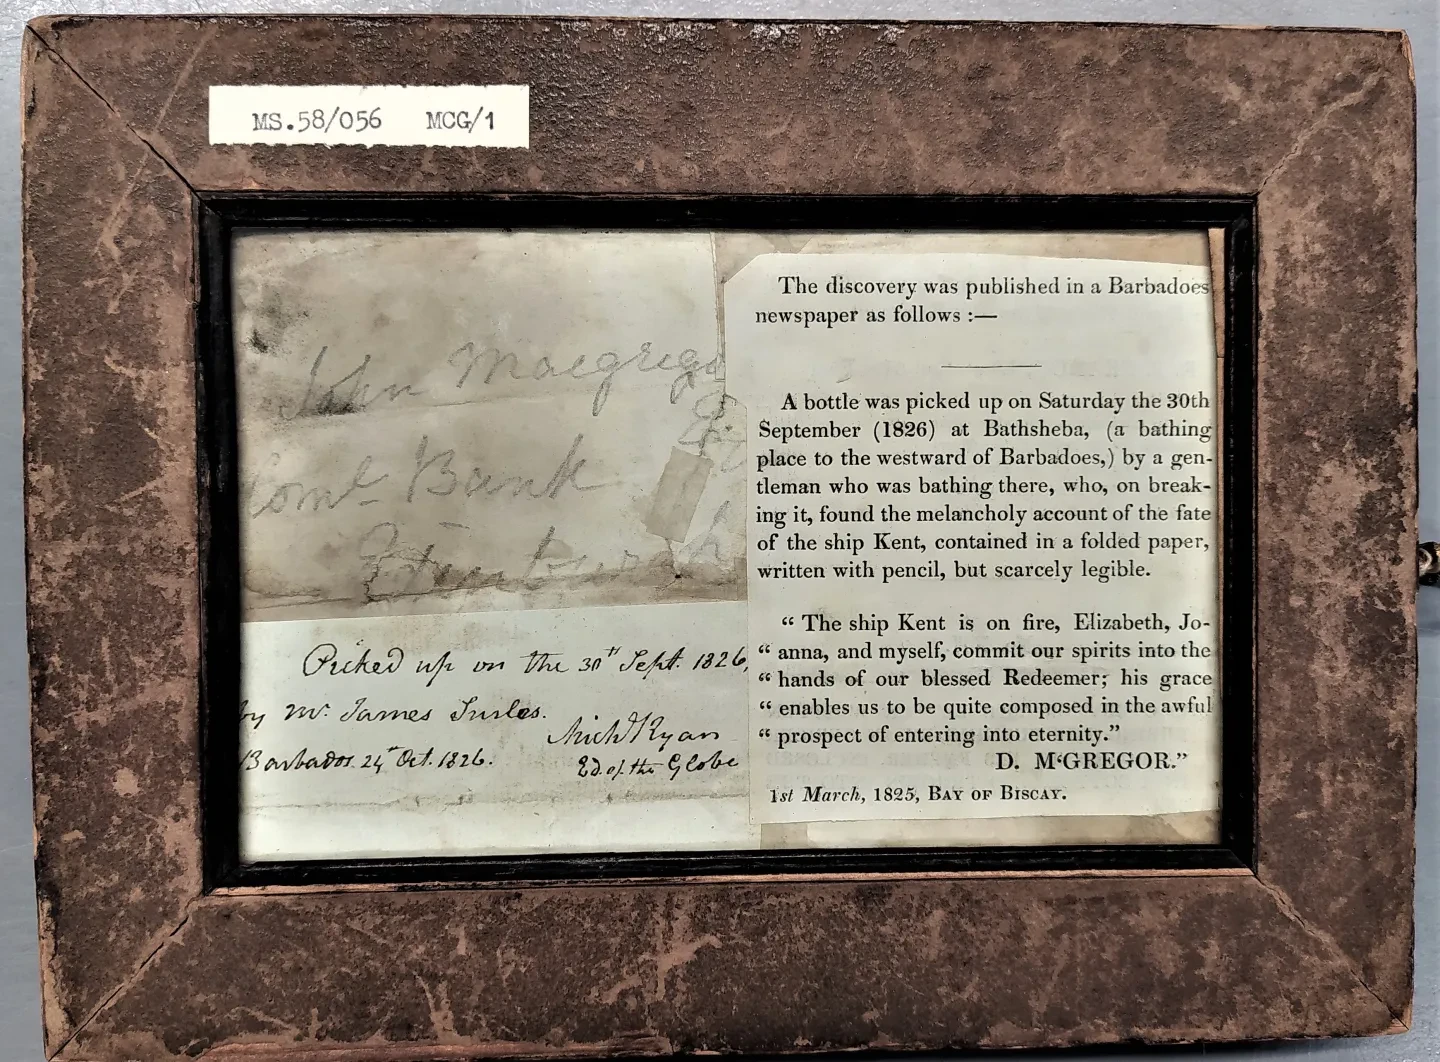 MS.58/056 MCG/1
John Macgrego
Coml Bank
Edinburgh
Picked up on the 30th Sept. 1826,
by Mr. James
Barbados 24th Oct. 1826.
Michl Ryan
Ed. of the Globe
The discovery was published in a Barbadoes
newspaper as follows :—
A bottle was picked up on Saturday the 30th
September (1826) at Bathsheba, (a bathing
place to the westward of Barbadoes,) by a gen-
tleman who was bathing there, who, on break-
ing it, found the melancholy account of the fate
of the ship Kent, contained in a folded paper,
written with pencil, but scarcely legible.
“ The ship Kent is on fire, Elizabeth, Jo-
“ anna, and myself, commit our spirits into the
“ hands of our blessed Redeemer; his grace
“ enables us to be quite composed in the awful
“ prospect of entering into eternity.”
D. M‘GREGOR.”
1st March, 1825, BAY OF BISCAY.